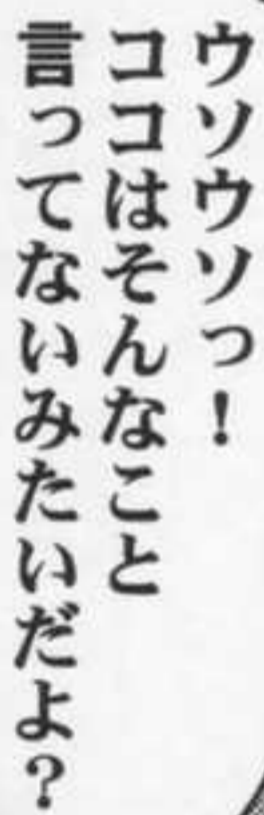 ウソウソっ！
ココはそんなこと
言ってないみたいだよ？